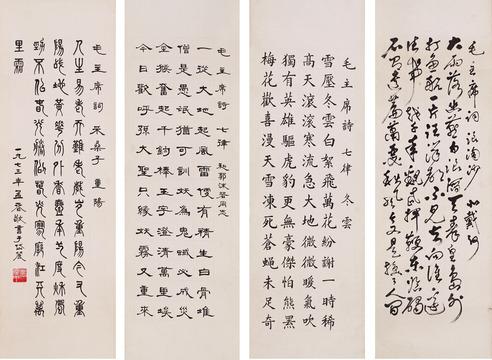 毛主席词 浪淘沙 北戴河
大雨落幽燕白浪滔天秦皇岛外
打鱼船一片汪洋都不见知向谁边
往事越千年魏武挥鞭东临碣
石有遗篇萧瑟秋风今又是换了人间
毛主席詩 七律 冬雲
雪壓冬雲白絮飛萬花紛謝一時稀
高天滾滾寒流急大地微微暖氣吹
獨有英雄驅虎豹更無豪傑怕熊羆
梅花歡喜漫天雪凍死蒼蠅未足奇
毛主席詩 七律 和郭沫若同志
一從大地起風雷便有精生白骨堆
僧是愚氓猶可訓妖為鬼蜮必成災
金猴奮起千鈞棒玉宇澄清萬里埃
今日歡呼孫大聖只緣妖霧又重來
毛主席詞 采桑子 重陽
人生易老天難老歲歲重陽今又重
陽戰地黃華分外香一年一度秋風
勁不似春光勝似春光寥廓江天萬
里霜
一九七三年孟春